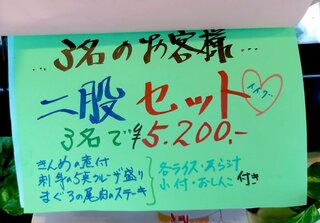 …3名のお客様…
二股セット
3名で¥5.200,-
きんめの煮付
刺身の5 盛り
まぐろの尾肉のステーキ
各ライス・あら汁
小付・おしんこ 付き